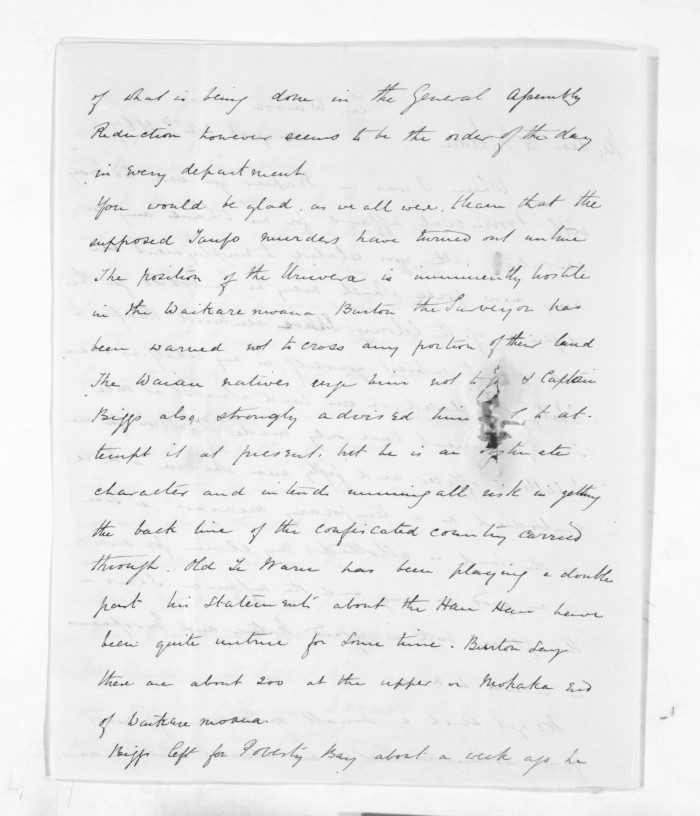 of what is being done in the General Assembly
Reduction however seems to be the order of the day
in every department.
You would be glad, as we all were, to learn that the
supposed Taupo murders have turned out untrue
The position of the Uriwera is imminently hostile
in the Waikare moana. Burton the Surveyor has
been warned not to cross any portion of their land
The Waiau natives urge him not to & Captain
Biggs also strongly advised him to at-
tempt it at present, but he is an obstinate
character and intends running all risk in getting
the back line of the confiscated country carried
through. Old Te Waru has been playing a double
part his statements about the Hau Haus have
been quite untrue for some time. Burton says
there are about 200 at the upper or Mohaka End
of Waikare moana.
Biggs left for Poverty Bay about a week ago he